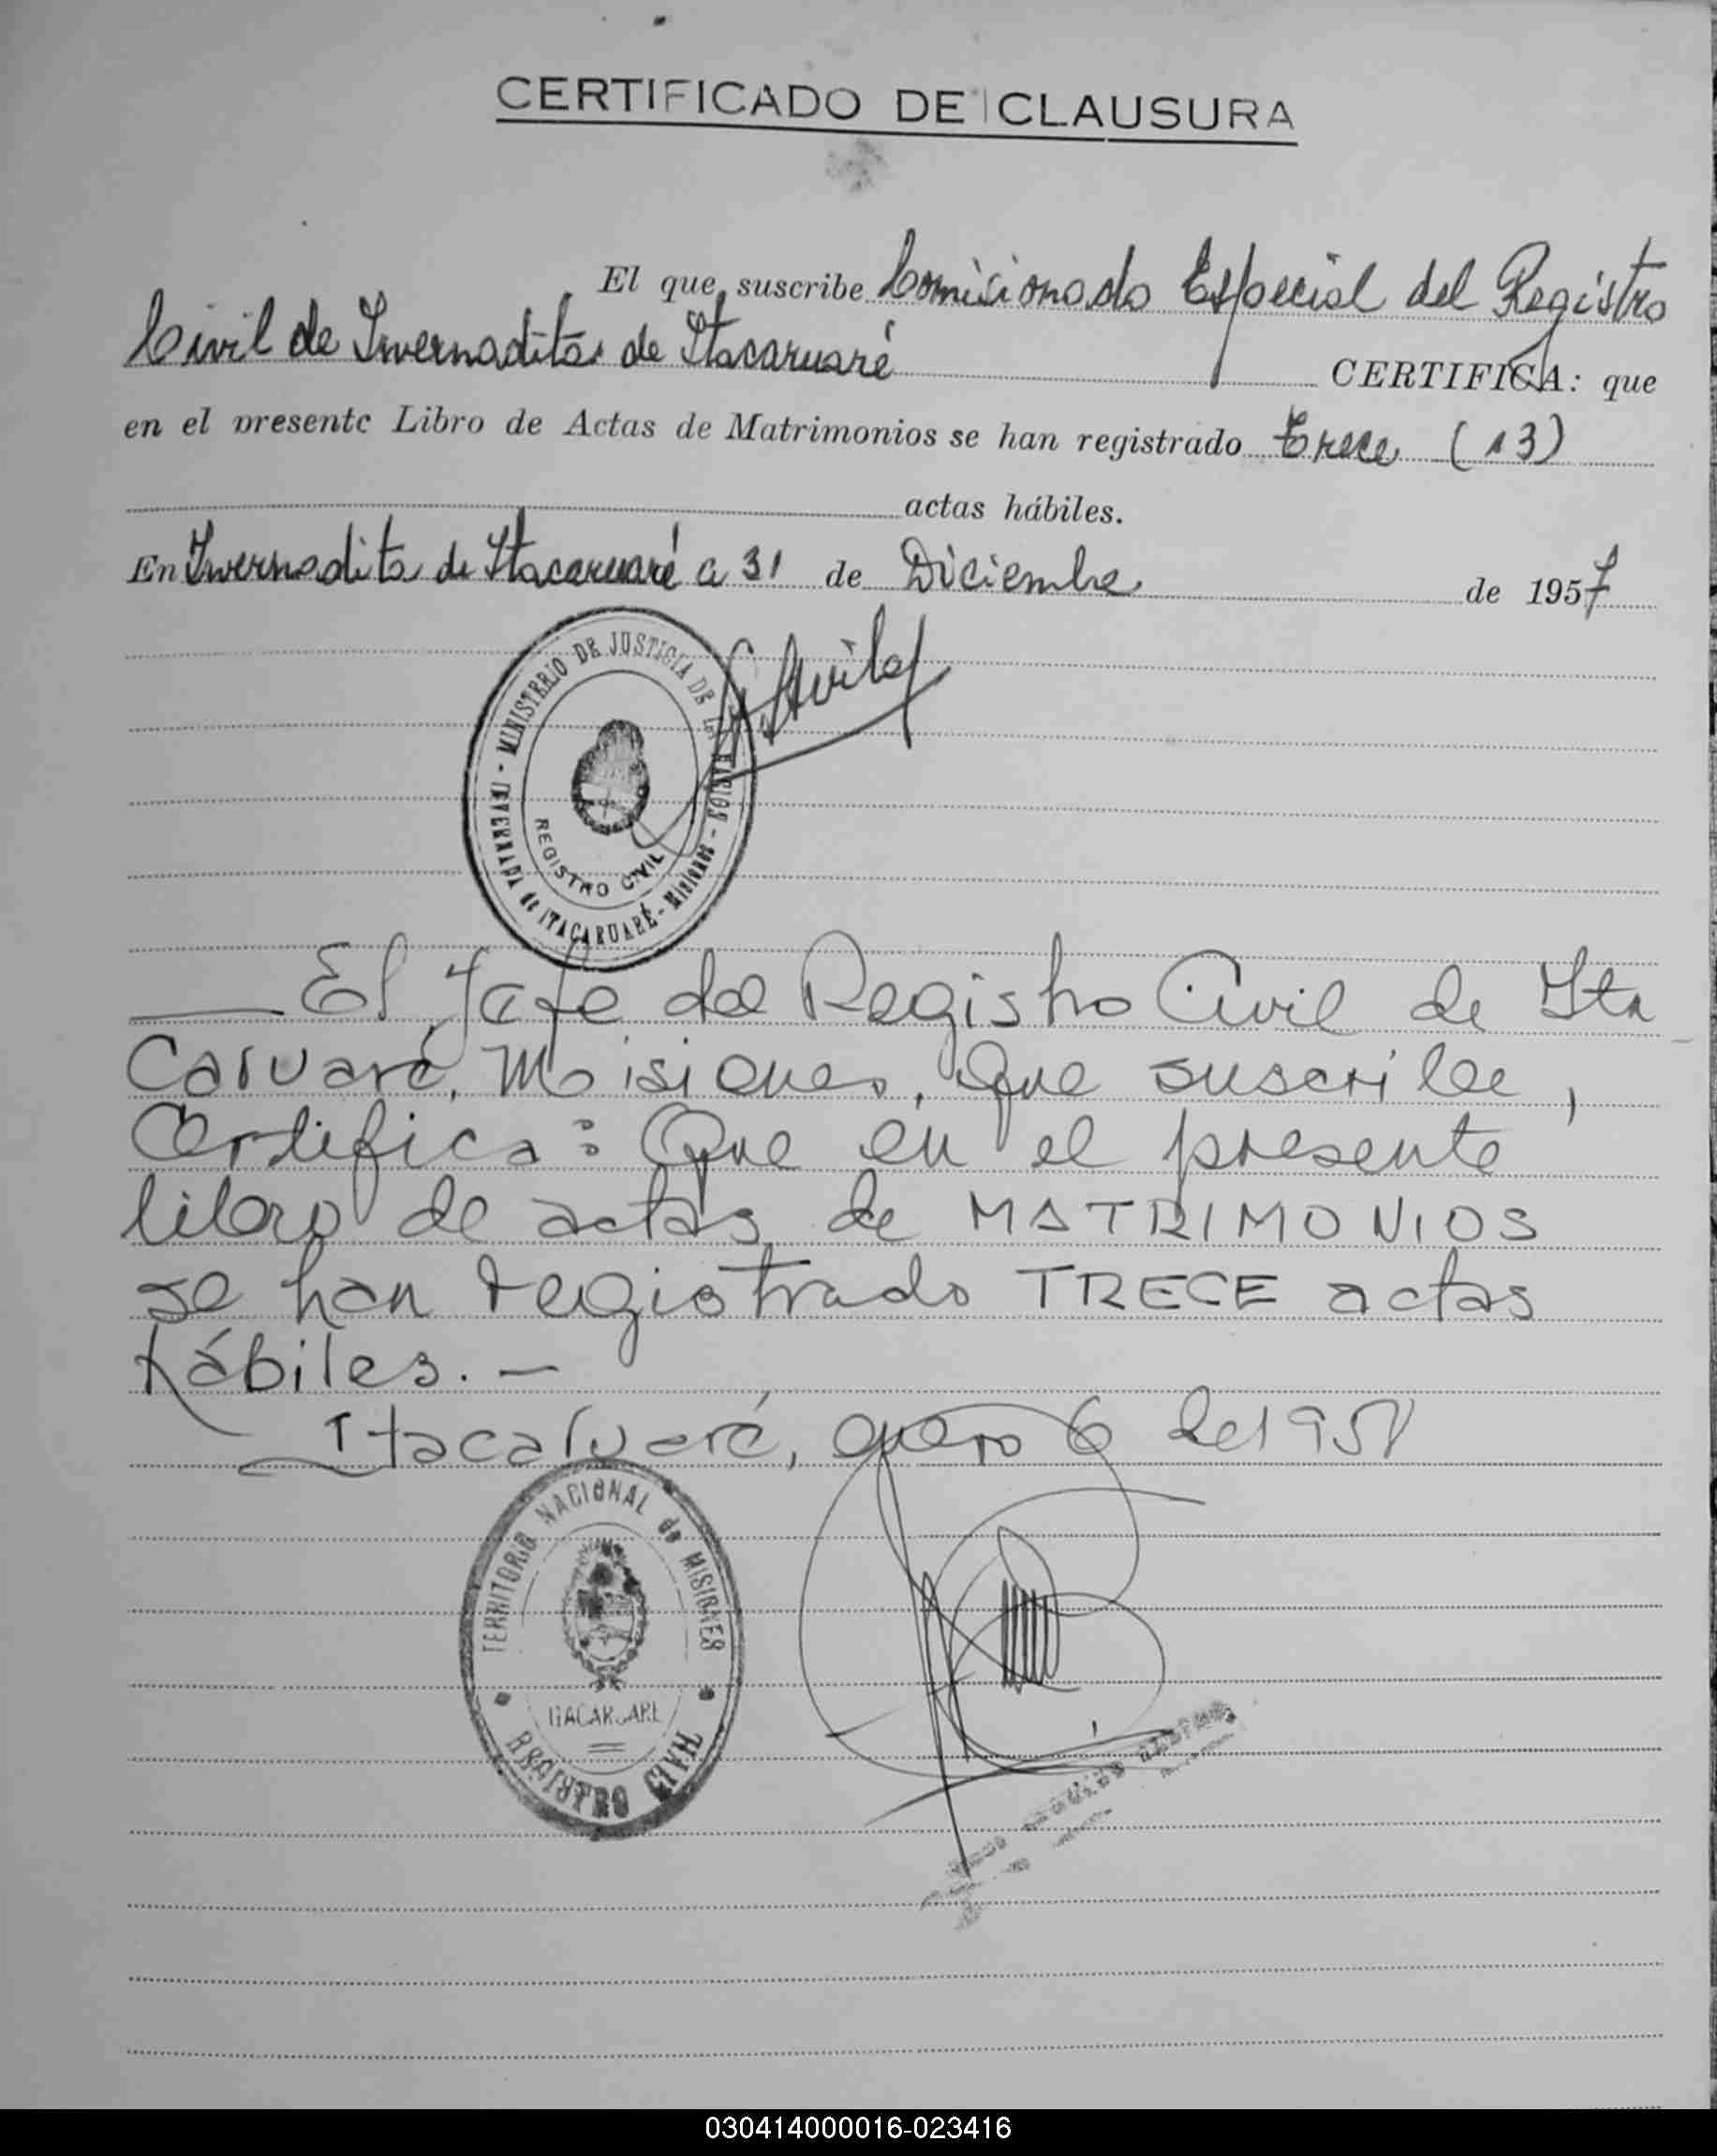 CERTIFICADO DE CLAUSURA
El que suscribe Comisionado Especial del Registro
Civil de Invernadita de Itacaruaré CERTIFICA: que
en el presente Libro de Actas de Matrimonios se han registrado trece (13)
actas hábiles.
En Invernadita de Itacaruaré a 31 de Diciembre de 1957
Avila
MINISTERIO DE JUSTICIA DE LA NACION - Misiones - INVERNADA de ITACARUARÉ -
REGISTRO CIVIL
El Jefe del Registro Civil de Ita
Caruaré, Misiones, que suscribe,
Certifica: Que en el presente
libro de actas de MATRIMONIOS
se han registrado TRECE actas
hábiles. —
Itacaruaré, enero 6 de 1958
TERRITORIO NACIONAL de MISIONES
ITACARUARE
REGISTRO CIVIL
030414000016-023416